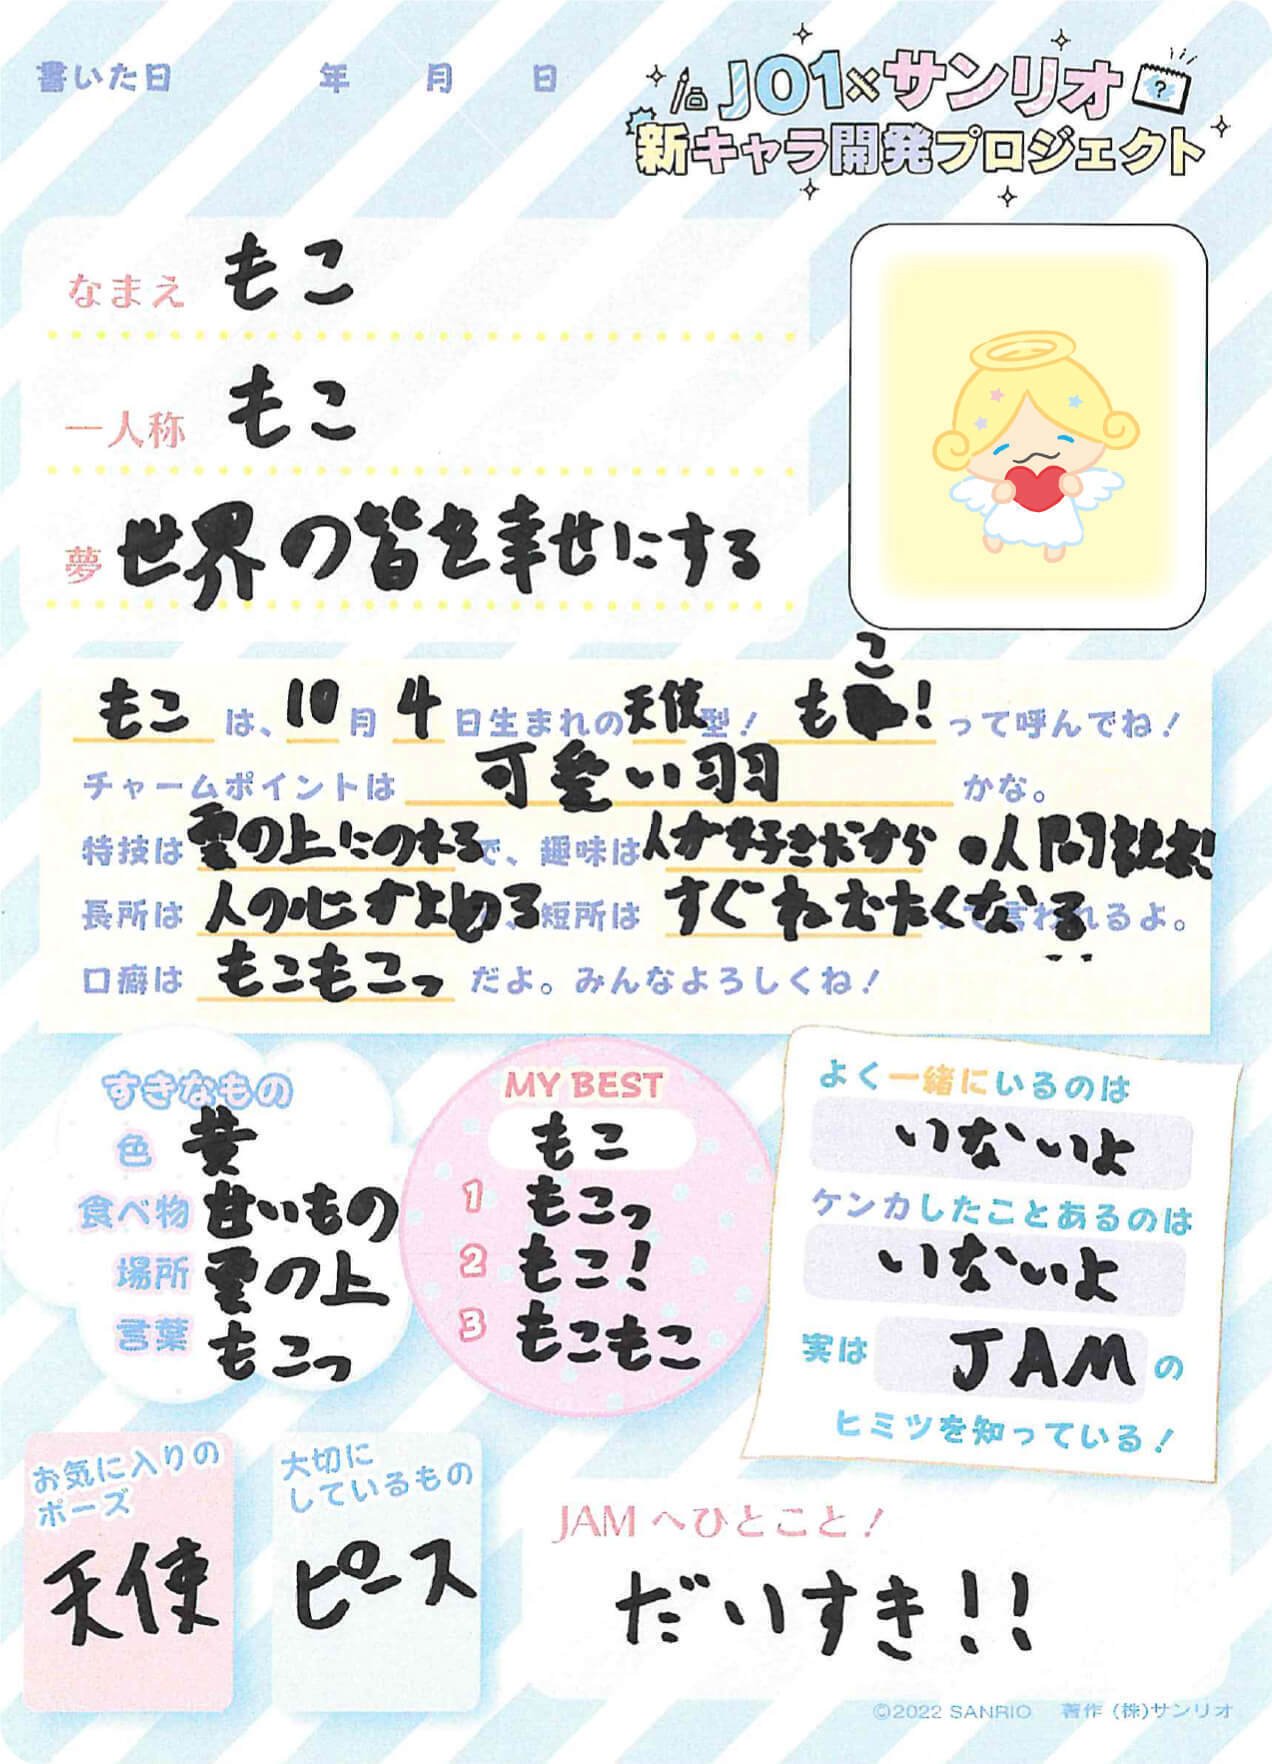 書いた日 年 月 日
JO1×サンリオ
新キャラ開発プロジェクト
?
なまえ もこ
一人称 もこ
夢 世界の皆を幸せにする
もこ は、10月4日生まれの天使型! もこ! って呼んでね!
チャームポイントは 可愛い羽 かな。
特技は雲の上にのれるで、趣味は人が好きだから・人間観察!
長所は 人の心がよめる、短所は すぐねむたくなる って言われるよ。
口癖は もこもこっ だよ。みんなよろしくね!
すきなもの
色 黄
食べ物 甘いもの
場所 雲の上
言葉 もこっ
MY BEST
もこ
1 もこっ
2 もこ!
3 もこもこ
よく一緒にいるのは
いないよ
ケンカしたことあるのは
いないよ
実は JAM の
ヒミツを知っている!
お気に入りの
ポーズ
天使
大切に
しているもの
ピース
JAMへひとこと!
だいすき!!
©2022 SANRIO 著作 (株)サンリオ